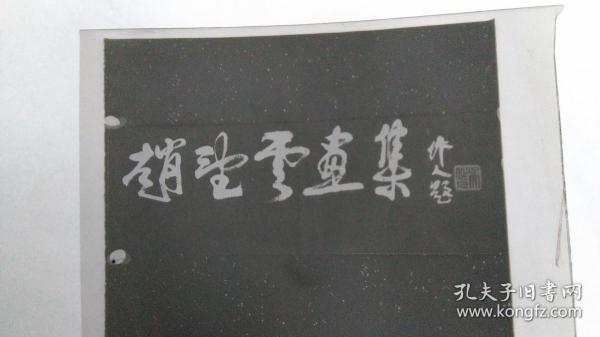 趙望雲畫集
作人題
孔夫子旧书网
www.kongfz.com